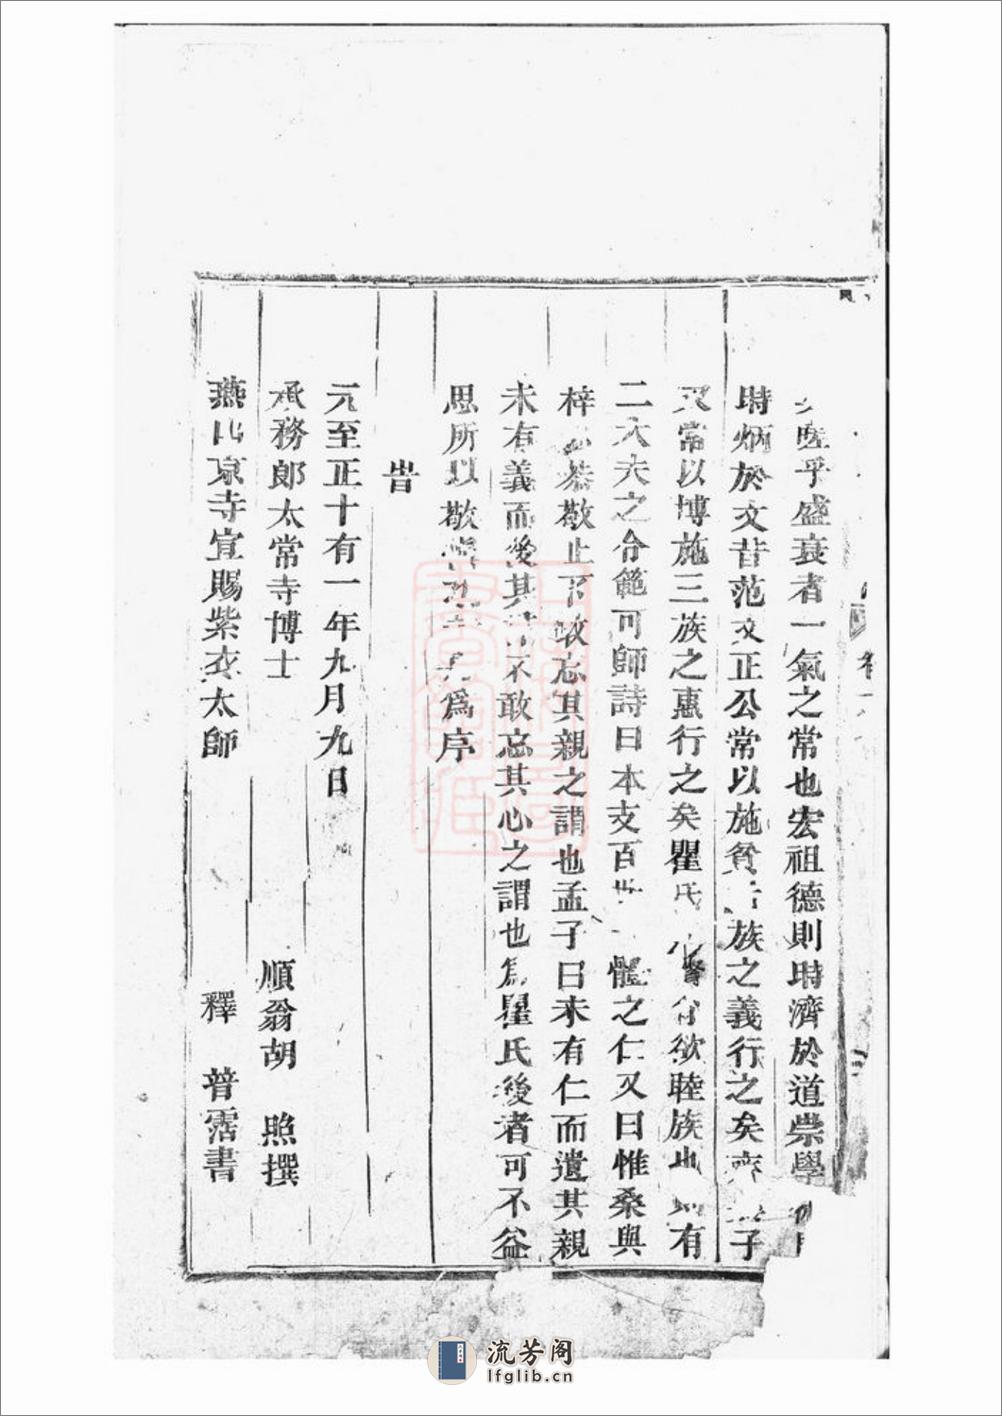 嗟乎盛衰者一氣之常也宏祖德則時濟於道崇學
時炳於文昔范文正公常以施貧族之義行之矣齊子
又常以博施三族之惠行之矣瞿氏欲睦族也則有
二大夫之令範可師詩曰本支百世體之仁又曰惟桑與
梓必恭敬止不敢忘其親之謂也孟子曰未有仁而遺其親
未有義而後其君不敢忘其心之謂也為瞿氏後者可不益
思所以敬為序
旹
元至正十有一年九月九日
承務郎太常寺博士 順翁胡 照撰
燕山京寺宣賜紫衣太師 釋 普霑書
流芳阁
lfglib.cn